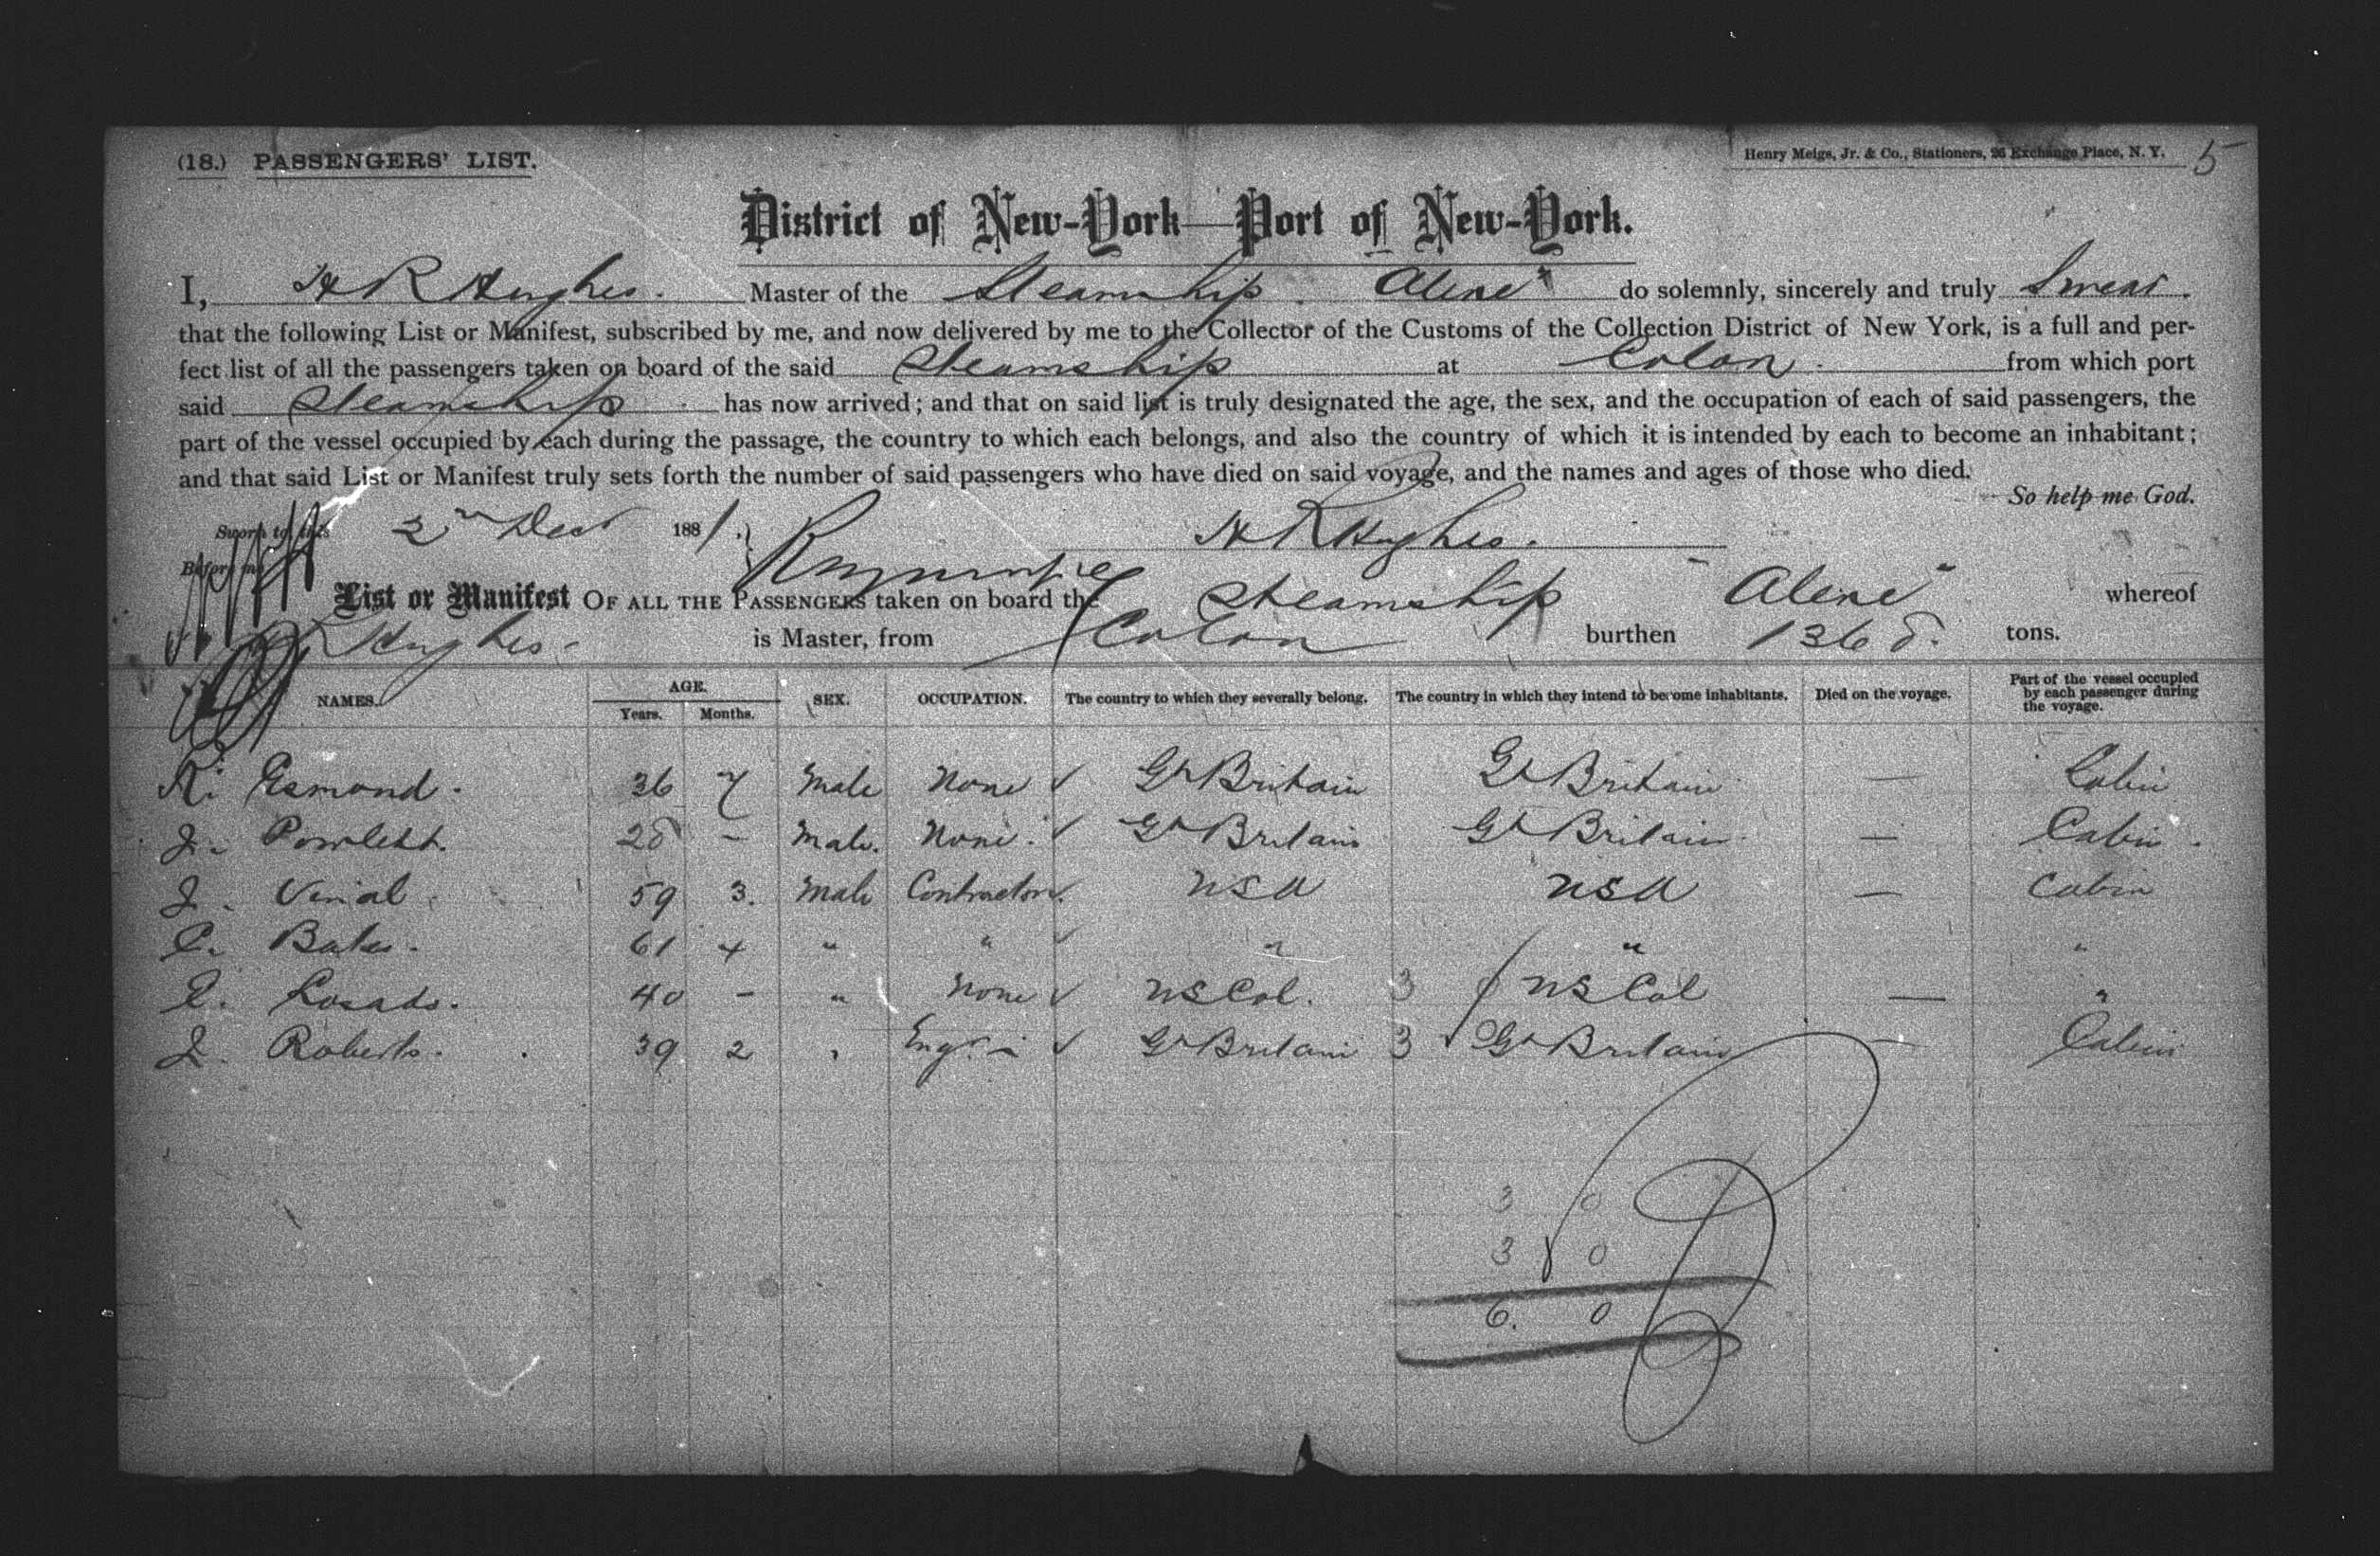 (18.) PASSENGERS' LIST.
Henry Meigs, Jr. & Co., Stationers, 26 Exchange Place, N. Y. 5
District of New-York—Port of New-York.
I, H R Hughes. Master of the Steamship "Alene" do solemnly, sincerely and truly Swear.
that the following List or Manifest, subscribed by me, and now delivered by me to the Collector of the Customs of the Collection District of New York, is a full and per-
fect list of all the passengers taken on board of the said Steamship at Colon. from which port
said Steamship has now arrived; and that on said list is truly designated the age, the sex, and the occupation of each of said passengers, the
part of the vessel occupied by each during the passage, the country to which each belongs, and also the country of which it is intended by each to become an inhabitant;
and that said List or Manifest truly sets forth the number of said passengers who have died on said voyage, and the names and ages of those who died.
So help me God.
Sworn to this 2nd Dec 1881. H R Hughes.
Before me
List or Manifest OF ALL THE PASSENGERS taken on board the Steamship "Alene" whereof
H R Hughes. is Master, from Colon burthen 1368. tons.
NAMES. AGE. Years. Months. SEX. OCCUPATION. The country to which they severally belong. The country in which they intend to become inhabitants. Died on the voyage. Part of the vessel occupied by each passenger during the voyage.
R. Esmond. 36 7 Male None Gt Britain Gt Britain — Cabin
J. Powlett. 28 – Male. None. Gt Britain Gt Britain — Cabin.
J. Vinal 59 3. Male Contractor. USA USA — Cabin
C. Bates. 61 4 " " " " "
E. Losada. 40 – " None US Col. 3 US Col — "
J. Roberts. 39 2 " Engr Gt Britain 3 Gt Britain — Cabin
3 0
3 0
6. 0